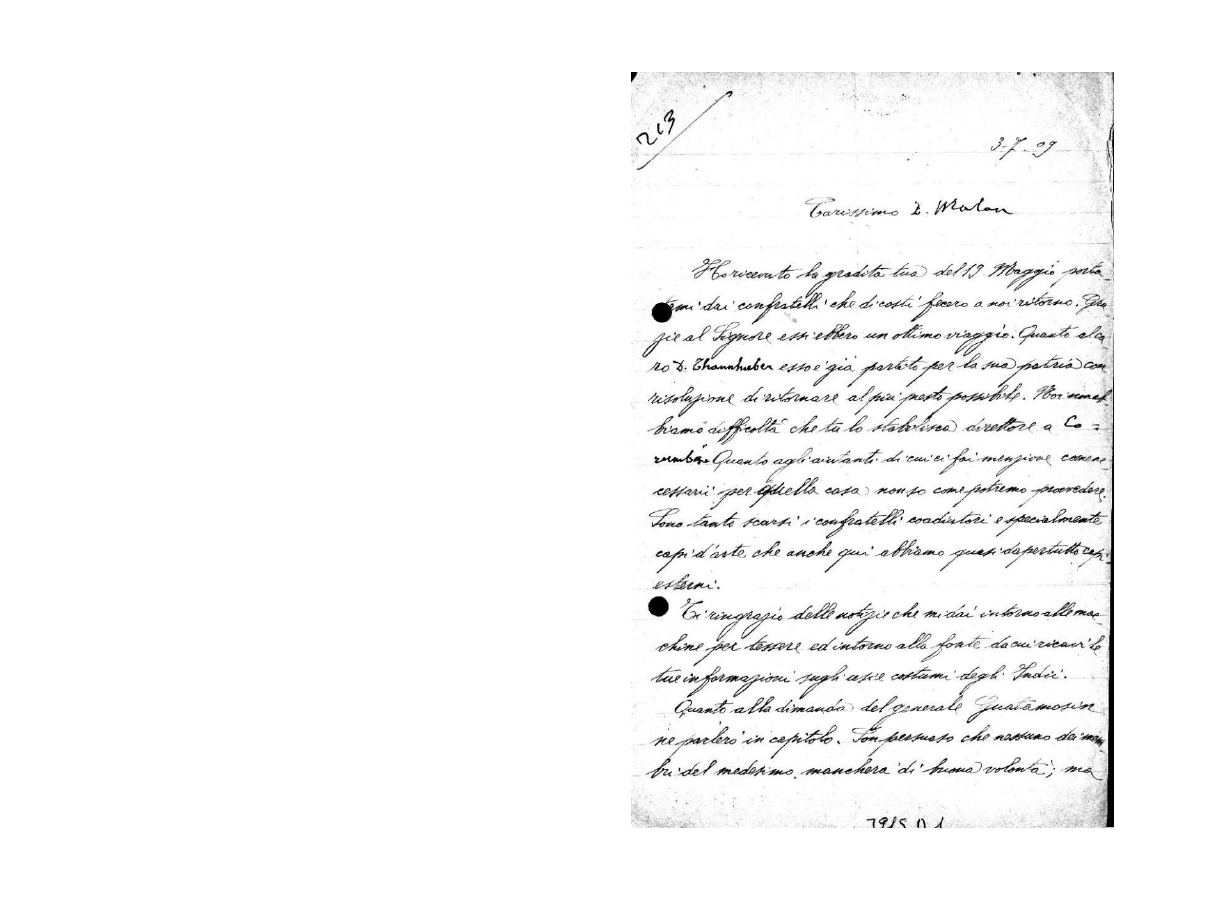 213
3-7-09
Carissimo D. Malan
Ho ricevuto la gradita tua del 19 Maggio porta-
temi dai confratelli che di costì fecero a noi ritorno. Gra
zie al Signore essi ebbero un ottimo viaggio. Quanto al ca-
ro D. Thannhuber esso è già partito per la sua patria con
risoluzione di ritornare al più presto possibile. Noi non ab
biamo difficoltà che tu lo stabilisca direttore a Co=
rumbà. Quanto agli aiutanti di cui ci fai menzione come ne
cessarii per quella casa non so come potremo provvedere.
Sono tanto scarsi i confratelli coadiutori e specialmente
capi d'arte che anche qui abbiamo quasi dapertutto capi
esterni.
Ti ringrazio delle notizie che mi dai intorno alle mac-
chine per tessere ed intorno alla fonte da cui ricavi le
tue informazioni sugli usi e costumi degli Indii.
Quanto alla dimanda del generale Guatamosin
ne parlerò in capitolo. Son persuaso che nessuno dei mem
bri del medesimo mancherà di buona volontà; ma